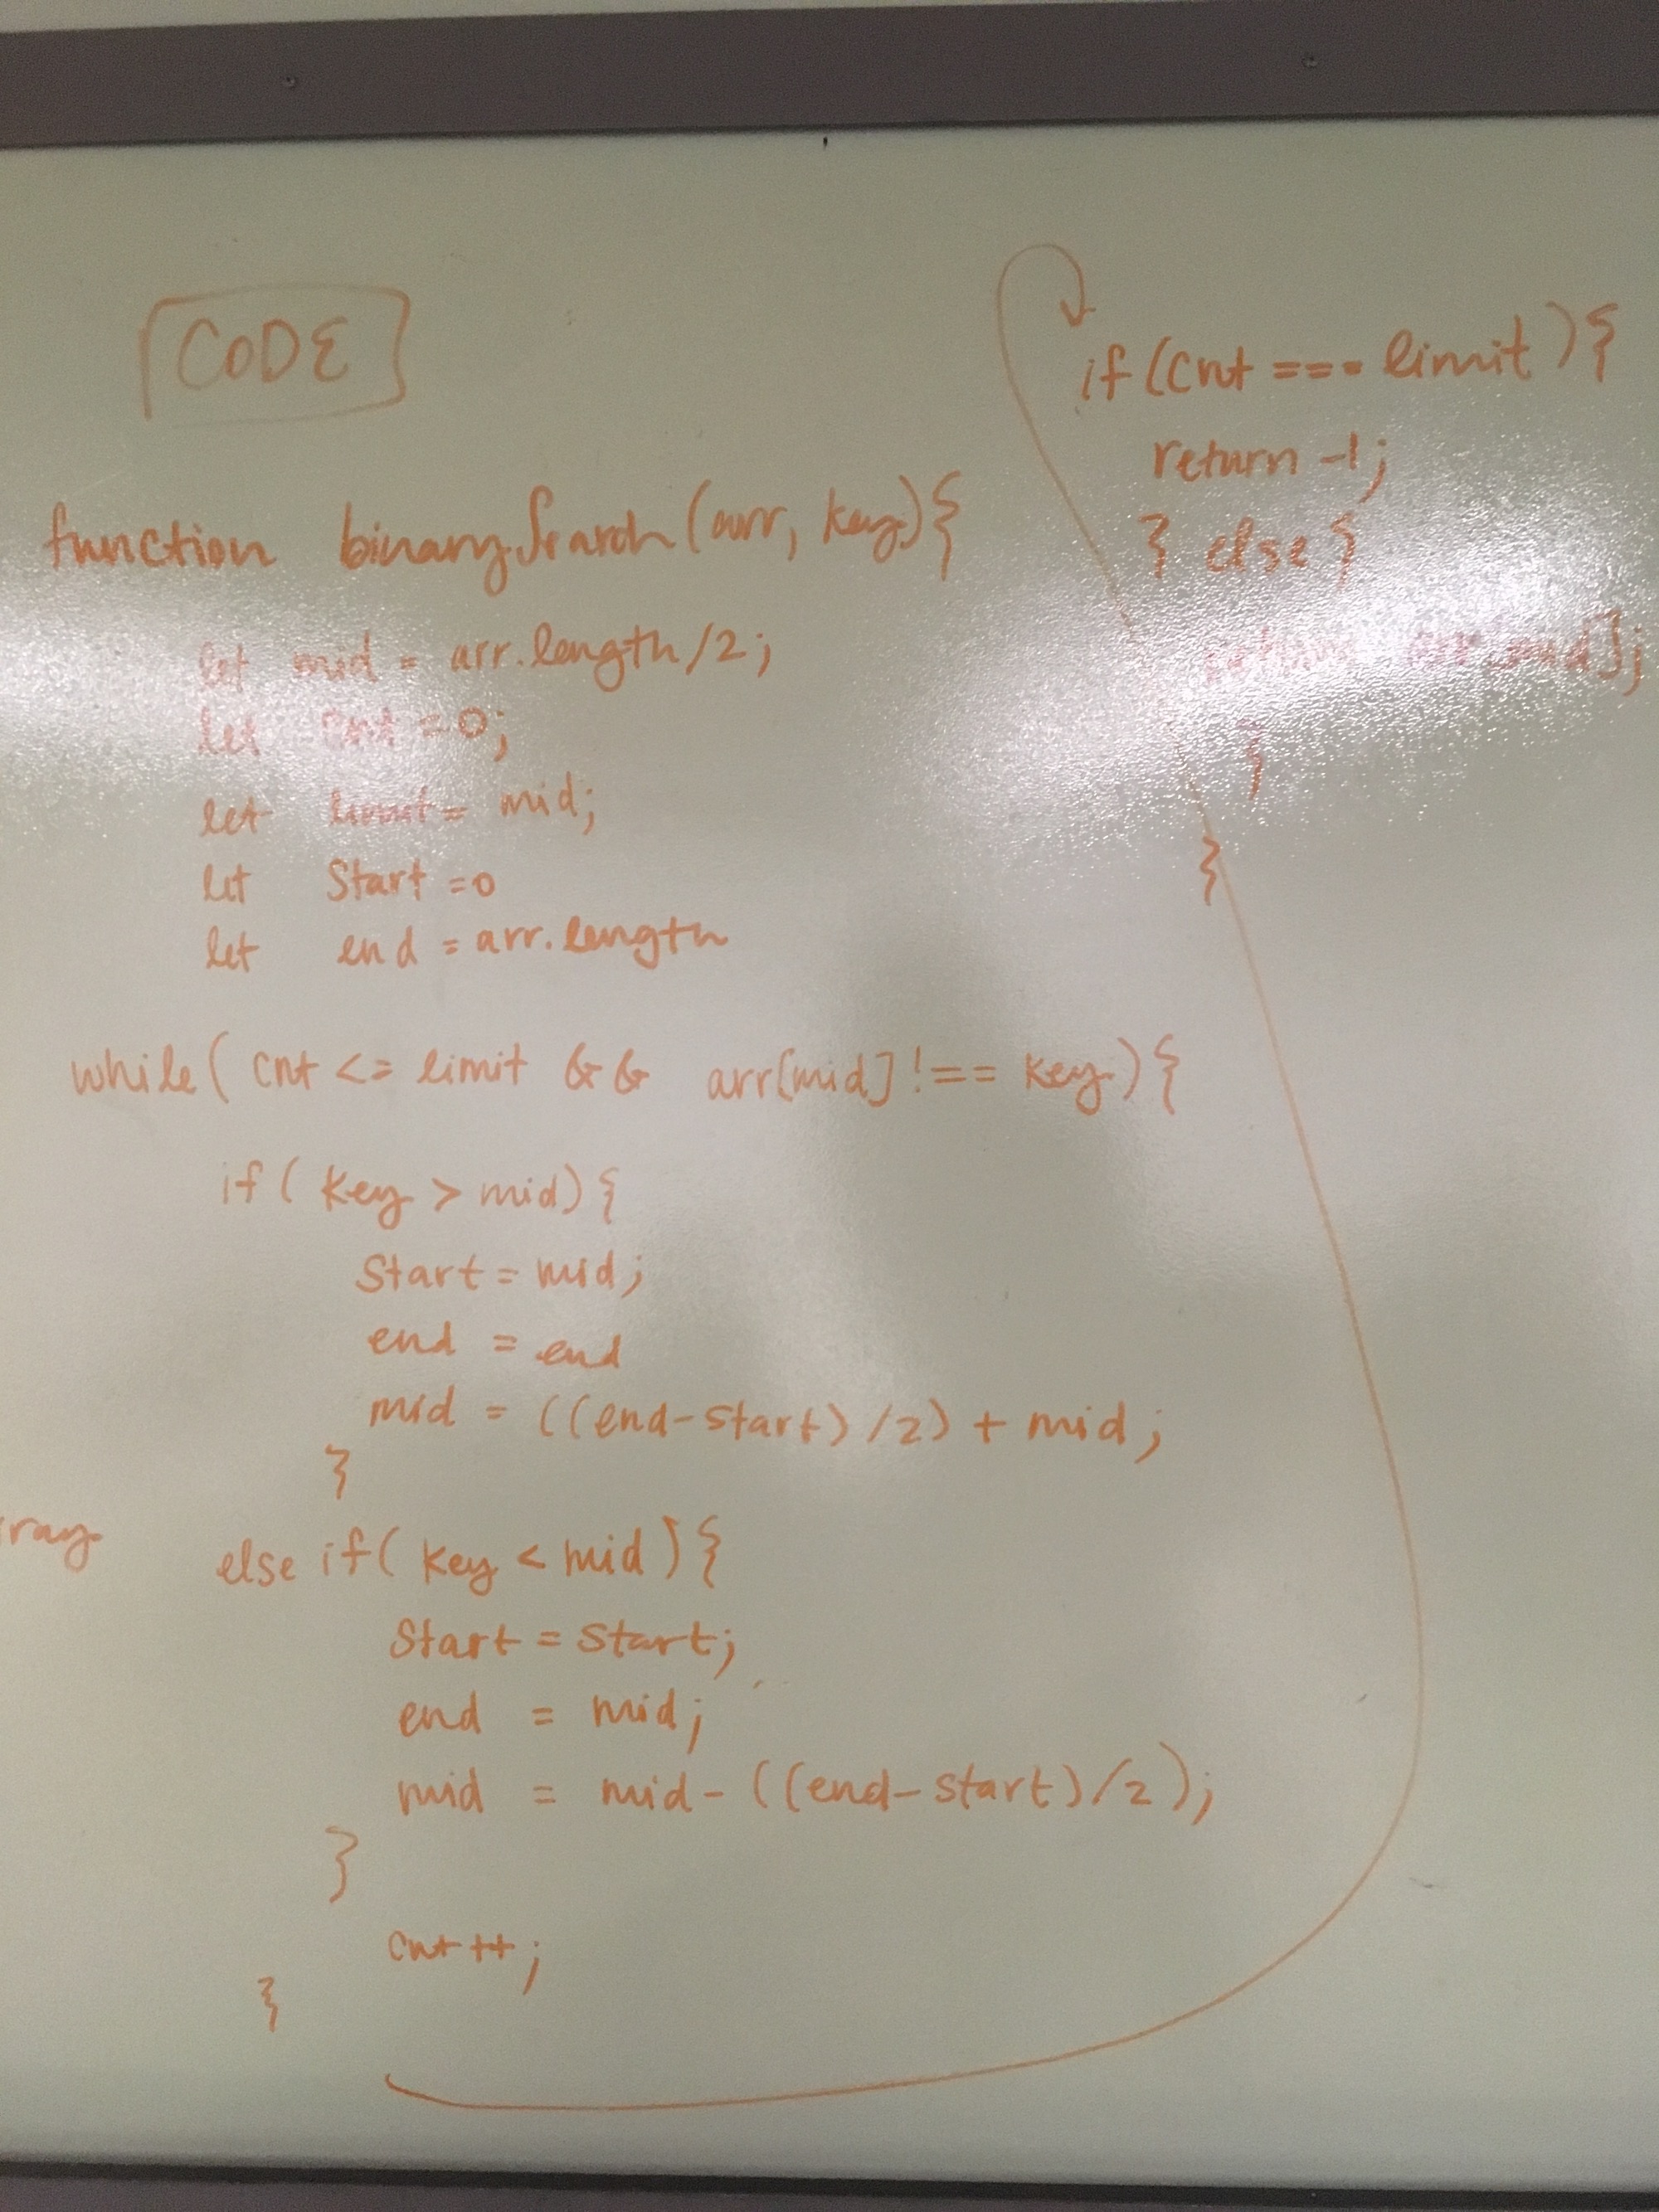 CODE
function binarySearch(arr, key){
let mid = arr.length/2;
let cnt = 0;
let limit = mid;
let Start = 0
let end = arr.length
while( cnt <= limit && arr[mid] !== key){
if( key > mid){
Start = mid;
end = end
mid = ((end-start)/2) + mid;
}
else if( key < mid){
Start = Start;
end = mid;
mid = mid-((end-start)/2);
}
cnt++;
}
if(cnt === limit){
return -1;
} else {
return arr[mid];
}
}